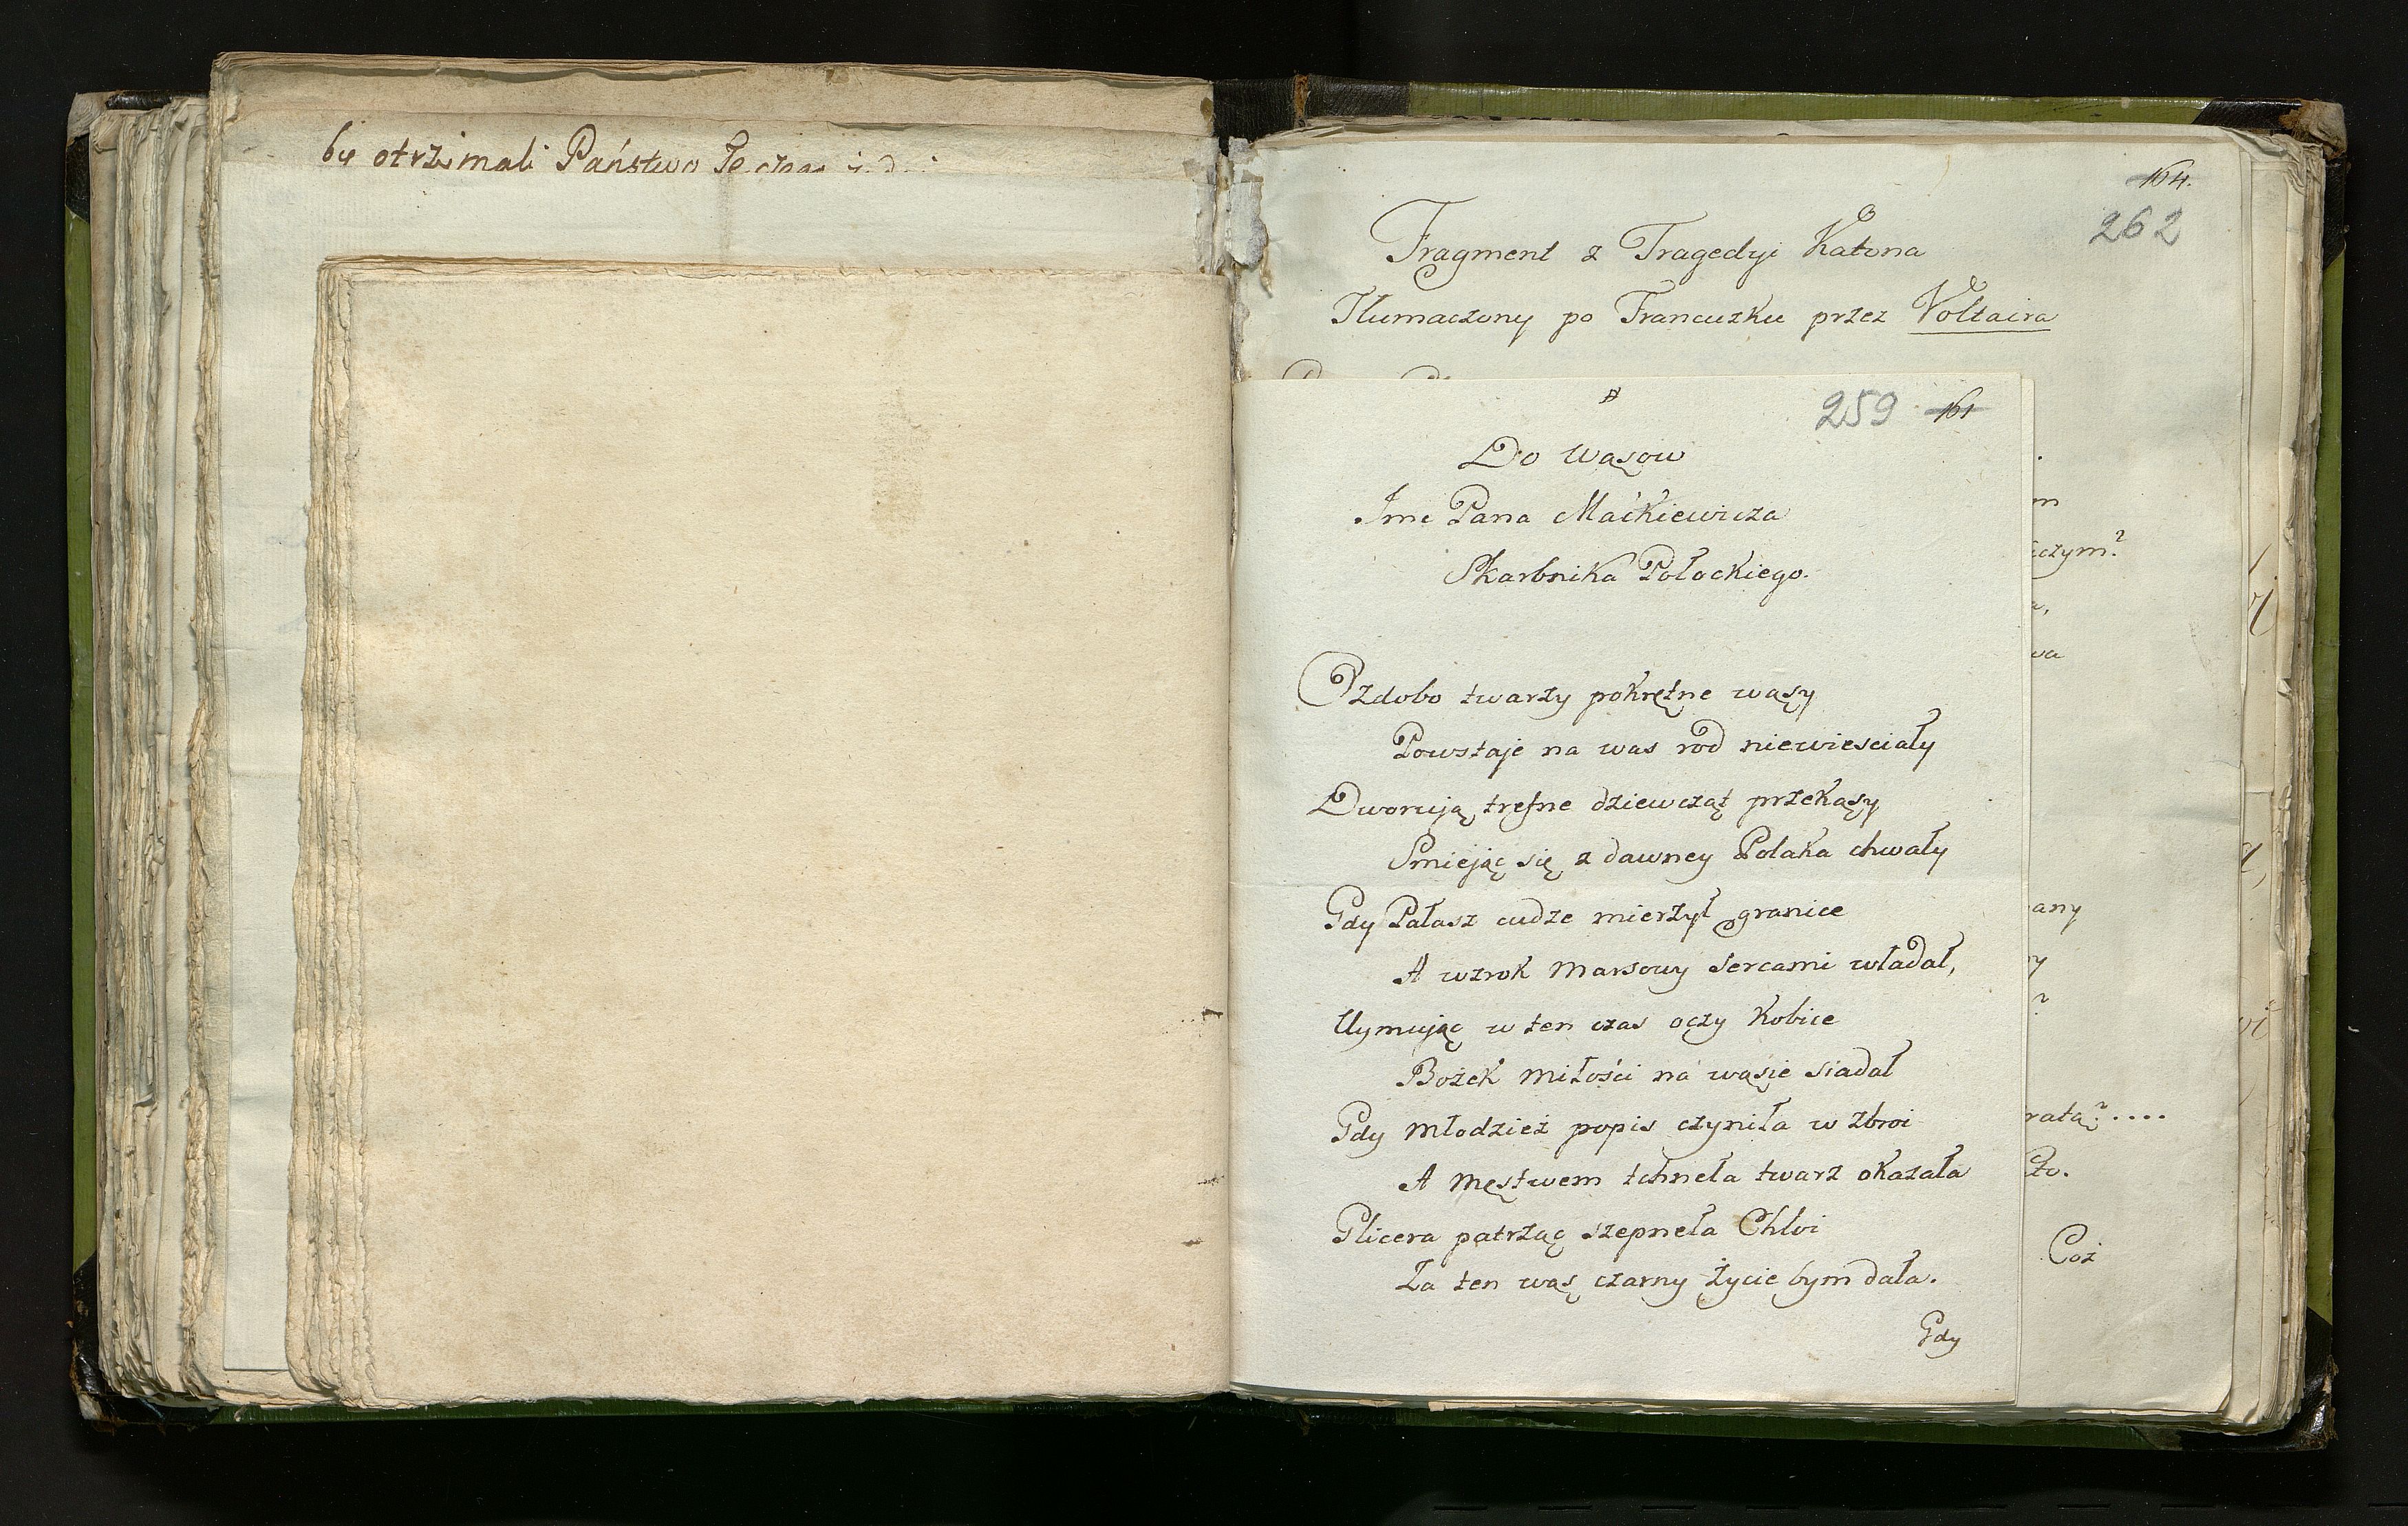 by otrzimali Państwo
164.
262
Fragment z Tragedyi Katona
Tłumaczony po Francuzku przez Voltaira
259 161
Do Wąsow
Jmc Pana Maćkiewicza
Skarbnika Połockiego.
Ozdobo twarzy pokrętne wąsy
Powstaje na was rod niewiesciały
Dworują trefne dziewcząt przekąsy
Smiejąc się z dawney Polaka chwały
Gdy Pałasz cudze mierzył granice
A wzrok Marsowy Sercami władał,
Uymując w ten czas oczy Kobice
Bożek miłości na wąsie siadał
Gdy Młodzież popis czyniła w zbroi
A Męstwem tchneła twarz okazała
Glicera patrząc szepneła Chloi
Za ten wąs czarny życie bym dała.
Gdy
m
iczym?
a,
wa
any
y
?
ratą?....
Coż